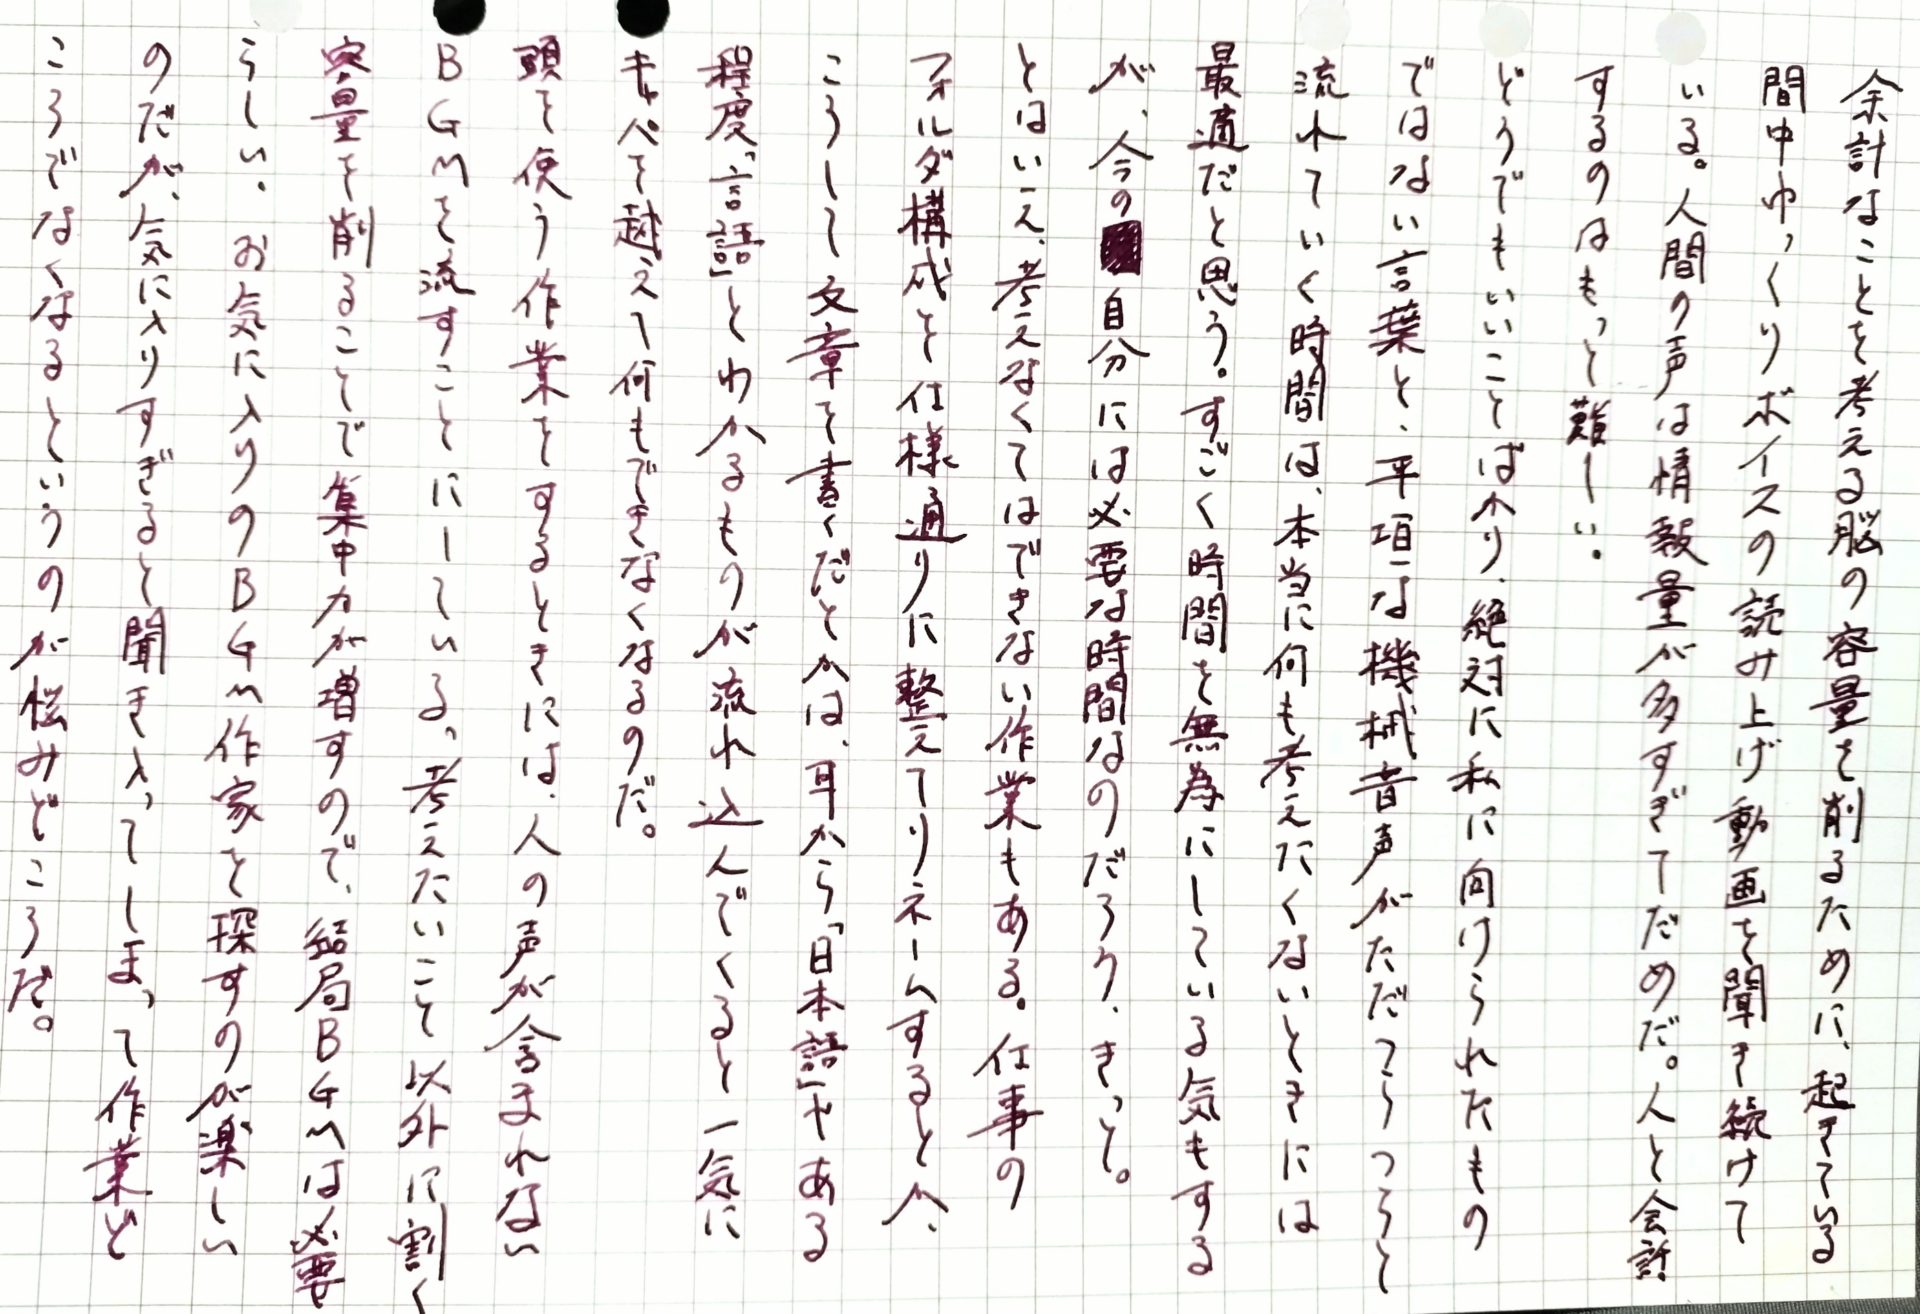 余計なことを考える脳の容量を削るために、起きている
間中ゆっくりボイスの読み上げ動画を聞き続けて
いる。人間の声は情報量が多すぎてだめだ。人と会話
するのはもっと難しい。
どうでもいいことばかり、絶対に私に向けられたもの
ではない言葉と、平坦な機械音声がただつらつらと
流れていく時間は、本当に何も考えたくないときには
最適だと思う。すごく時間を無為にしている気もする
が、今の自分には必要な時間なのだろう、きっと。
とはいえ、考えなくてはできない作業もある。仕事の
フォルダ構成と仕様通りに整えてリネームするとか、
こうして文章を書くだとかは、耳から「日本語」やある
程度「言語」とわかるものが流れ込んでくると一気に
キャパを越えて何もできなくなるのだ。
頭を使う作業をするときには、人の声が含まれない
BGMを流すことにしている。考えたいこと以外に割く
容量を削ることで集中力が増すので、結局BGMは必要
らしい。お気に入りのBGM作家を探すのが楽しい
のだが、気に入りすぎると聞き入ってしまって作業ど
ころでなくなるというのが悩みどころだ。